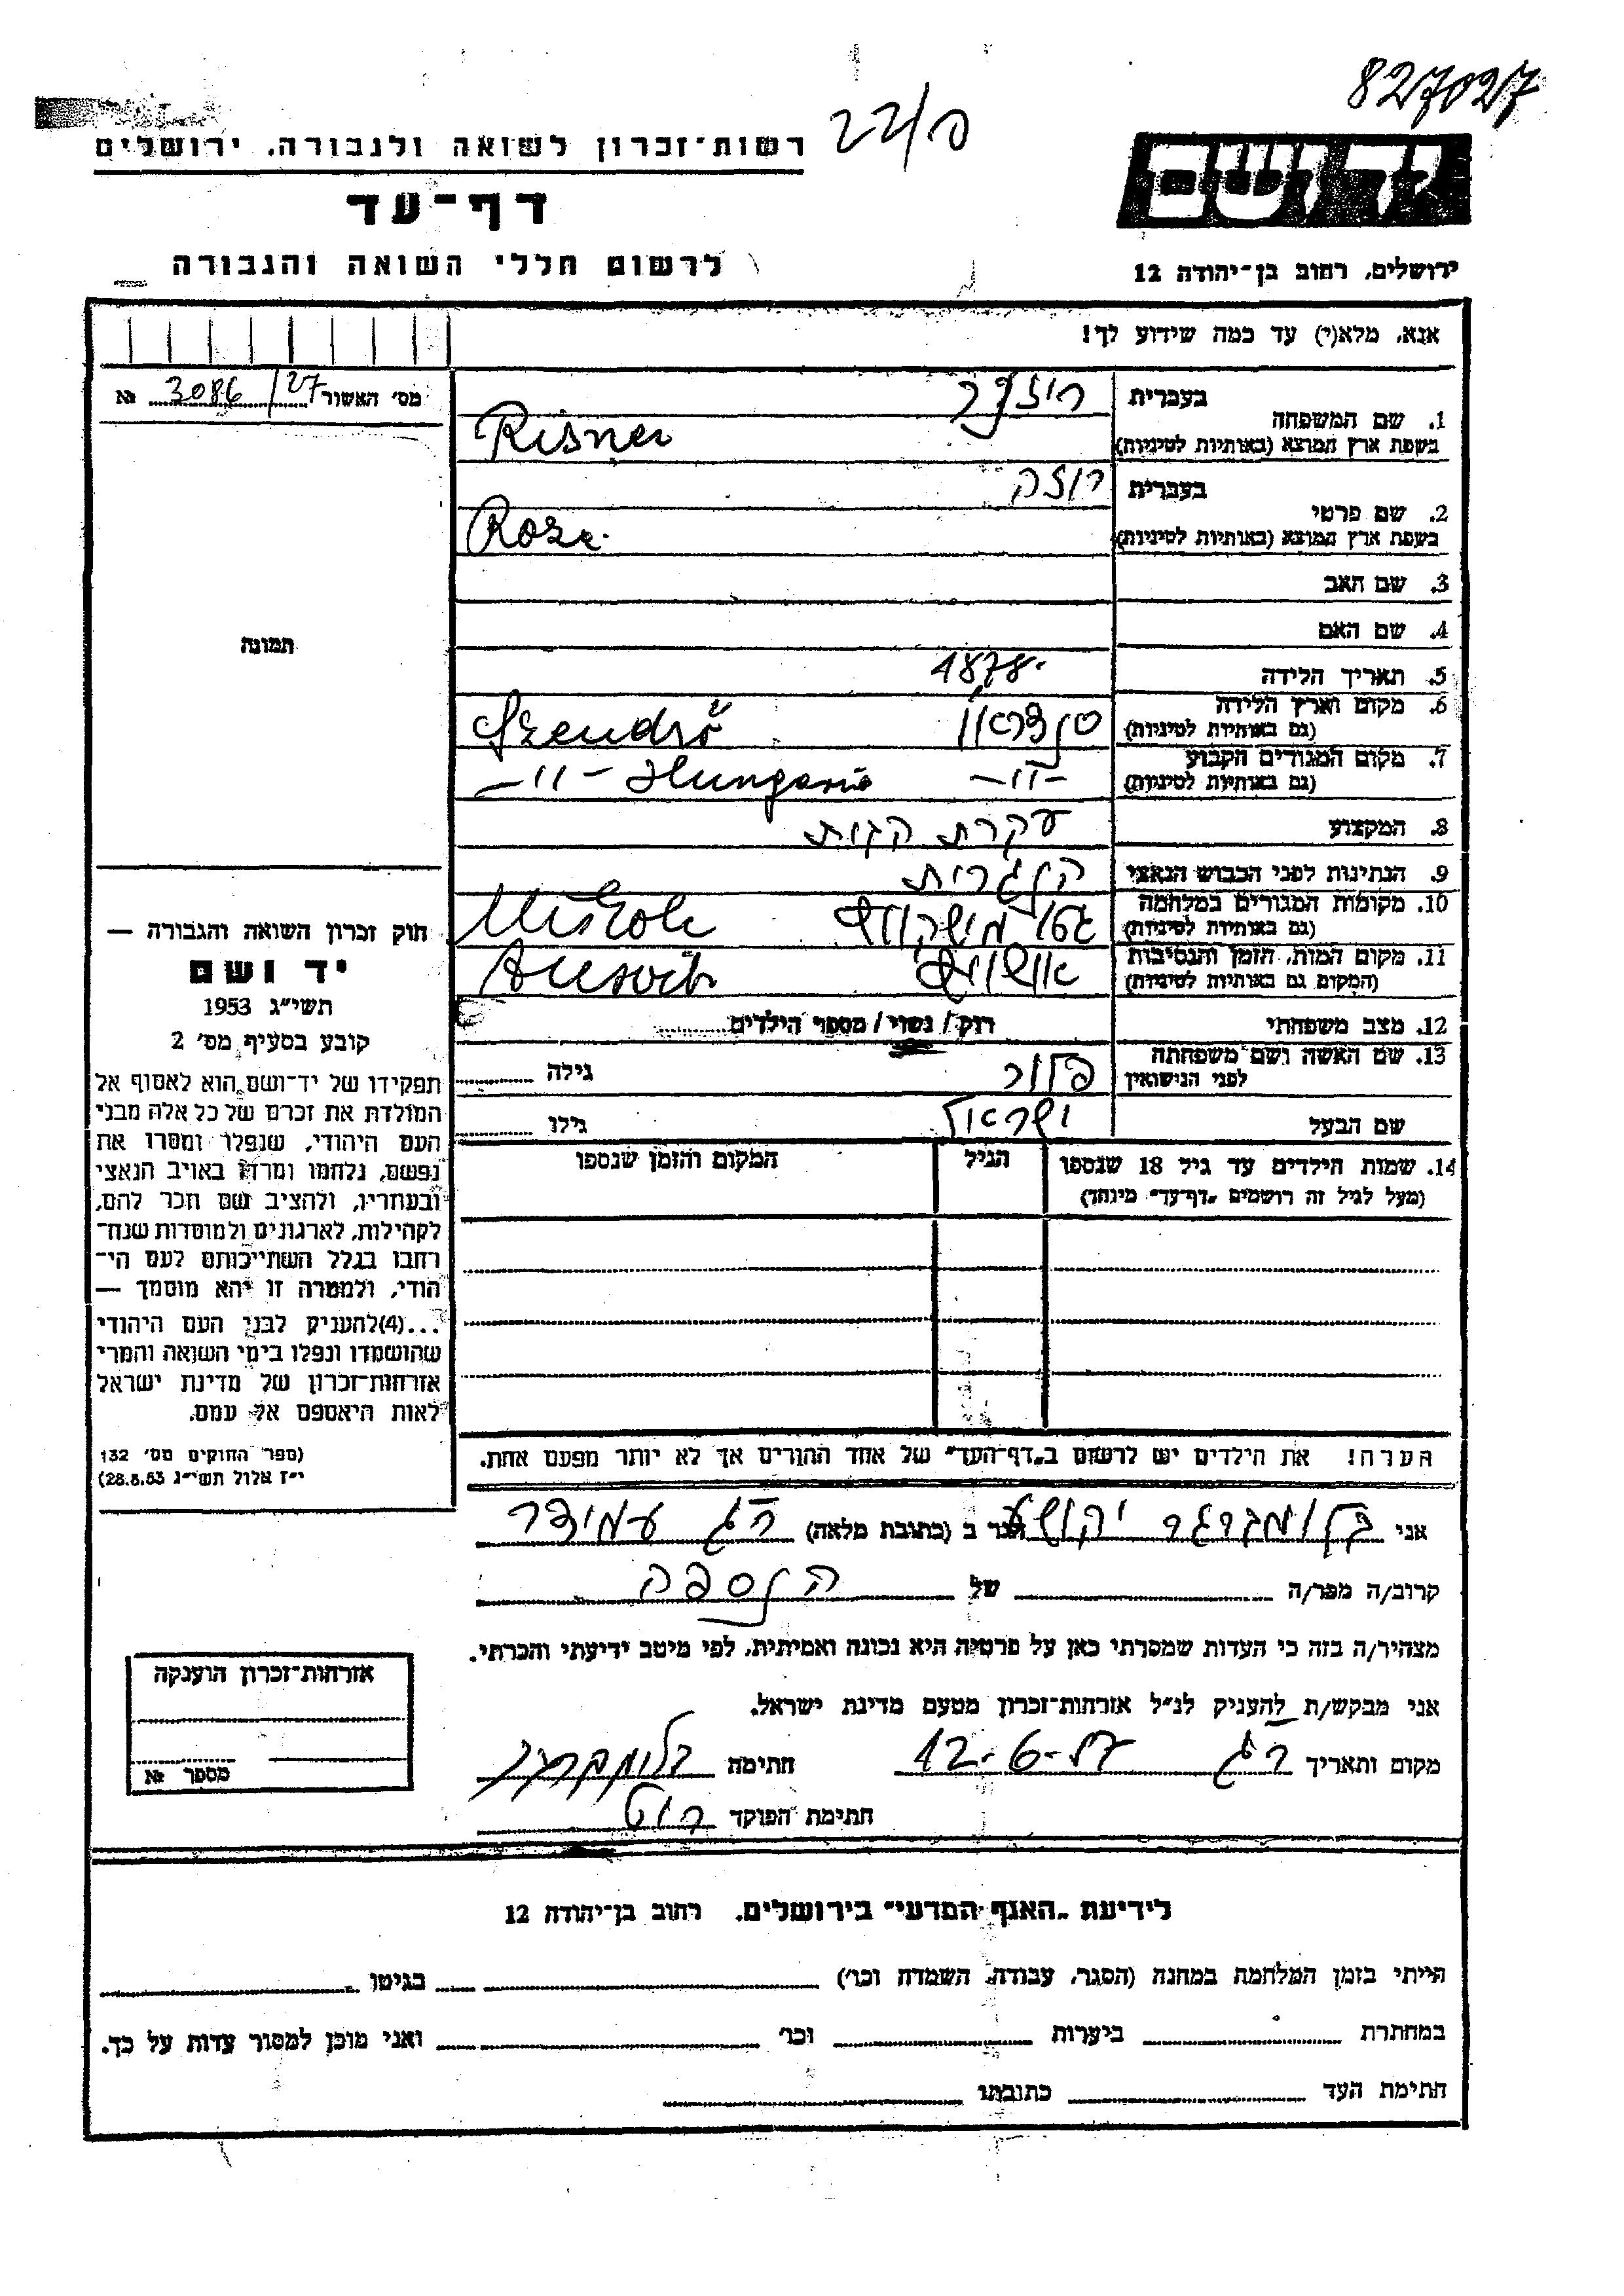 827027
22/ס
רשות־זכרון לשואה ולגבורה, ירושלים
יד ושם
דף־עד
לרשום חללי השואה והגבורה
ירושלים, רחוב בן־יהודה 12
אנא, מלא(י) עד כמה שידוע לך!
מס׳ האשור 3086/27 №
1. שם המשפחה
בעברית
בשפת ארץ המוצא (באותיות לטיניות) Risner
2. שם פרטי
בעברית רוזה
בשפת ארץ המוצא (באותיות לטיניות) Roza
3. שם האב
4. שם האם
5. תאריך הלידה 1878
6. מקום וארץ הלידה
(גם באותיות לטיניות) Szendrő
7. מקום המגורים הקבוע
(גם באותיות לטיניות) -״- -״- Hungaria
8. המקצוע עקרת הבית
9. הנתינות לפני הכבוש הנאצי הונגרית
10. מקומות המגורים במלחמה
(גם באותיות לטיניות) גטו מישקולץ Miskolc
11. מקום המות, הזמן והנסיבות
(המקום גם באותיות לטיניות) אושוויץ Ausvitz
12. מצב משפחתי רוק/נשוי/מספר הילדים
13. שם האשה ושם משפחתה
לפני הנישואין גילה
שם הבעל ישראל גילו
14. שמות הילדים עד גיל 18 שנספו
(מעל לגיל זה רושמים „דף־עד״ מיוחד)
הגיל
המקום והזמן שנספו
הערה! את הילדים יש לרשום ב„דף־העד״ של אחד ההורים אך לא יותר מפעם אחת.
תמונה
חוק זכרון השואה והגבורה —
יד ושם
תשי״ג 1953
קובע בסעיף מס׳ 2
תפקידו של יד־ושם הוא לאסוף אל
המולדת את זכרם של כל אלה מבני
העם היהודי, שנפלו ומסרו את
נפשם, נלחמו ומרדו באויב הנאצי
ובעוזריו, ולהציב שם וזכר להם,
לקהילות, לארגונים ולמוסדות שנח־
רבו בגלל השתייכותם לעם הי־
הודי, ולמטרה זו יהא מוסמך —
...(4)להעניק לבני העם היהודי
שהושמדו ונפלו בימי השואה והמרי
אזרחות־זכרון של מדינת ישראל
לאות היאספם אל עמם.
(ספר החוקים מס׳ 132
י״ז אלול תשי״ג 28.8.53)
אני יהושע הגר ב (כתובת מלאה) עמידר
קרוב/ה מפר/ה של הנספה
מצהיר/ה בזה כי העדות שמסרתי כאן על פרטיה היא נכונה ואמיתית, לפי מיטב ידיעתי והכרתי.
אני מבקש/ת להעניק לנ״ל אזרחות־זכרון מטעם מדינת ישראל.
מקום ותאריך 12-6-57 חתימה
חתימת הפוקד
אזרחות־זכרון הוענקה
מספר №
לידיעת „האגף המדעי״ בירושלים, רחוב בן־יהודה 12
הייתי בזמן המלחמה במחנה (הסגר, עבודה, השמדה וכו׳) בגיטו
במחתרת ביערות וכו׳ ואני מוכן למסור עדות על כך.
חתימת העד כתובתו